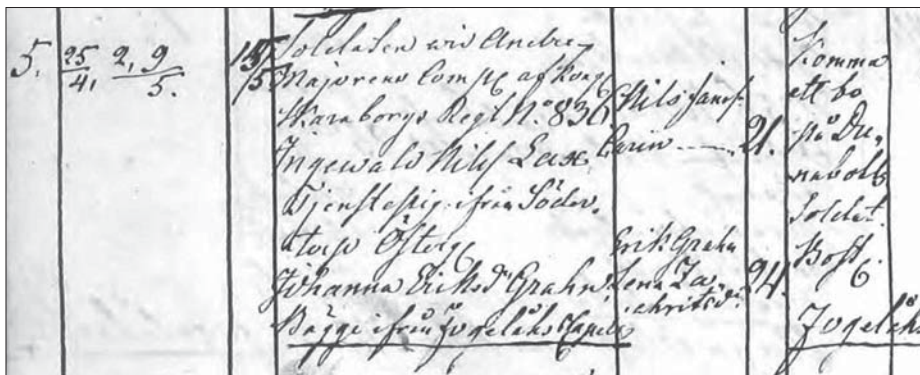 5. 25/4. 2, 9/5. 15/5
Soldaten wid Andre
Majorens Comp af Kongl
Skaraborgs Regt No 836
Ingewald Nils Lax
Tjenstepig: ifrån Söder,
torp Österg
Johanna Eriksdr Grahn
Bägge ifrån Fogelåhs Capell
Nils
Carin 21.
Erik Grahn
Lena Za
chrisd: 24.
Komma
att bo
på Du,
nabolts
Soldat
Bost.
Fogelåhs